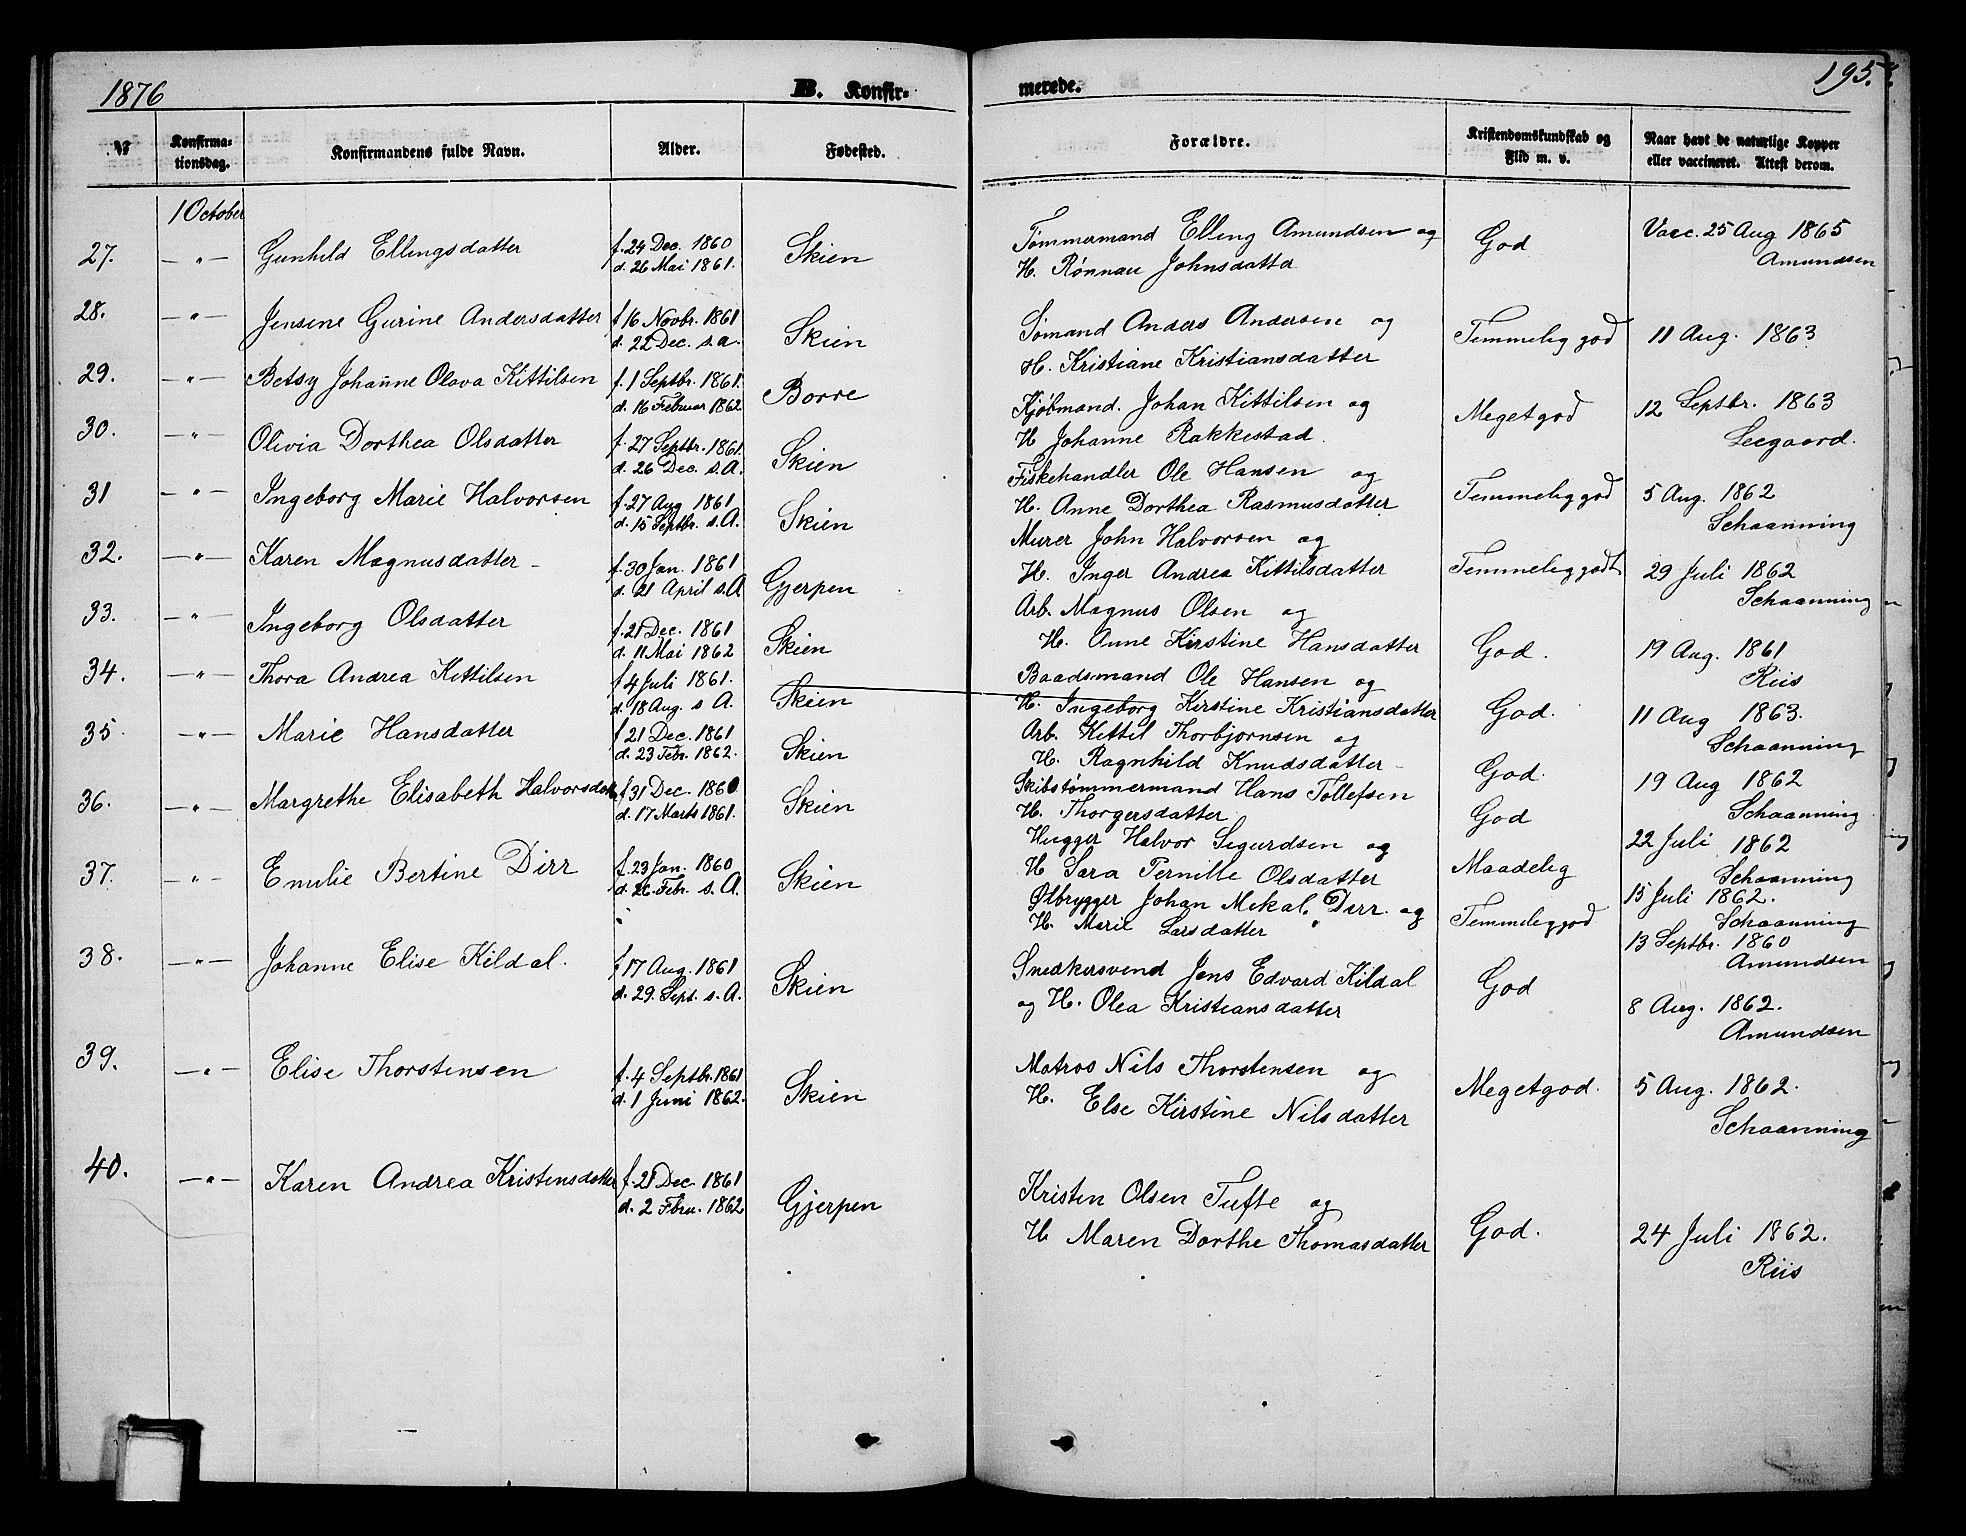 1876
B. Konfir-
merede.
195.
№
Konfirma-
tionsdag.
Konfirmandens fulde Navn.
Alder.
Fødested.
Forældre.
Kristendomskundskab og
Flid m. v.
Naar havt de naturlige Kopper
eller vaccineret. Attest derom.
1 October
27. —"— Gunhild Ellingsdatter f. 24 Dec. 1860
d. 26 Mai 1861. Skien
Tømmermand Elling Amundsen og
H. Rønnau Johnsdatter
God
Vacc. 25 Aug 1865
Amundsen
28. —"— Jensine Gurine Andersdatter f. 16 Novbr. 1861
d. 22 Dec. s.a. Skien
Sømand Anders Andersen og
H. Kristiane Kristiansdatter
Temmelig god
11 Aug. 1863
29. —"— Betsy Johanne Olava Kittilsen f. 1 Septbr. 1861.
d. 16 Februar 1862. Borre
Kjøbmand. Johan Kittilsen og
H Johanne Rakkestad.
Meget god
12 Septbr. 1863
Seegaard.
30. —"— Olivia Dorthea Olsdatter f. 27 Septbr. 1861.
d. 26 Dec. s.A. Skien
Fiskehandler Ole Hansen og
H. Anne Dorthea Rasmusdatter
Temmelig god
5 Aug. 1862
Schaanning
31 —"— Ingeborg Marie Halvorsen f. 27 Aug 1861
d. 15 Septbr. s.A. Skien
Murer John Halvorsen og
H. Inger Andrea Kittilsdatter
Temmelig godt
29 Juli 1862
Schaanning
32. —"— Karen Magnusdatter f. 30 Jan. 1861
d. 21 April s.A Gjerpen
Arb. Magnus Olsen og
H. Anne Kirstine Hansdatter
God.
19 Aug. 1861
Riis
33. —"— Ingeborg Olsdatter f. 21 Dec. 1861
d. 11 Mai 1862 Skien
Baadsmand Ole Hansen og
H. Ingeborg Kirstine Kristiansdatter
God.
11 Aug 1863.
Schaanning
34. —"— Thora Andrea Kittilsen f 4 Juli 1861.
d. 18 Aug. s A. Skien
Arb. Kittil Thorbjørnsen og
H. Ragnhild Knudsdatter
God.
19 Aug 1862
Schaanning
35 —"— Marie Hansdatter f 21 Dec. 1861
d. 23 Febr. 1862. Skien
Skibstømmermand Hans Tollefsen
H. Thorgersdatter
God
22 Juli 1862
Schaanning
36. —"— Margrethe Elisabeth Halvorsdatter f 31 Dec. 1860
d. 17 Marts 1861. Skien
Hugger Halvor Sigurdsen og
H Sara Pernille Olsdatter
Maadelig
15 Juli 1862.
Schaanning
37. —"— Emilie Bertine Dirr f. 23 Jan. 1860
d. Febr. s. A. Skien
Ølbrygger Johan Mikal. Dirr. og
H. Marie Larsdatter
Temmelig god
13 Septbr. 1860
Amundsen
38. —"— Johanne Elise Kildal. f 17 Aug. 1861
d. 29. Sept. s.A. Skien
Snedkersvend Jens Edvard Kildal
og H. Olea Kristiansdatter
God
8 Aug. 1862.
Amundsen
39. —"— Elise Thorstensen f. 4 Septbr. 1861
d. 1 Juni 1862. Skien
Matros Nils Thorstensen og
H. Else Kirstine Nilsdatter
Meget god.
5 Aug. 1862.
Schaanning
40. —"— Karen Andrea Kristensdatter f. 21 Dec. 1861
d. 2 Fbru. 1862 Gjerpen
Kristen Olsen Tufte og
H Maren Dorthe Thomasdatter
God.
24 Juli 1862.
Riis